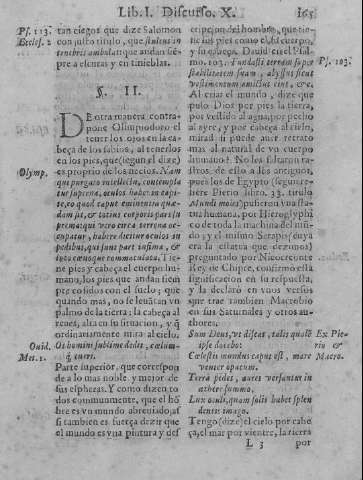 Lib. I. Discurso. X.
165
Ps. 113.
Eccles. 2
tan ciegos que dize Salomon
con justo titulo, que stultus in
tenebris ambulat que andan siem
pre a escuras y en tinieblas.
§. II.
DE otra manera contra-
pone Olimpiodoro el
tener los ojos en la ca-
beça de los sabios, al tenerlos
en los pies, que (segun el dize)
Olymp.
es proprio de los necios. Nam
qui purgato intellectu, contempla
tur superna, oculos habet in capi-
te, eo quod caput eminentium quæ-
dam sit, & totius corporis pars su
prema: qui vero circa terrena oc-
cupatur, habere dicitur oculos in
pedibus, qui sunt pars infima, &
luto cœnoque commaculata. Tie-
ne pies y cabeça el cuerpo hu-
mano, los pies que andan siem
pre cosidos con el suelo; que
quando mas, no se leuãtan vn
palmo de la tierra; la cabeça al
reues, alta en su situacion, y q̃
ordinariamente mira al cielo.
Ouid.
Met. 1.
Os homini sublime dedit, cœlum-
que tueri.
Parte superior, que correspon
de a lo mas noble y mejor de
sus elpheras. Y como dizen to
dos communmente, que el hõ
bre es vn mundo abreuiado, assi
si tambien es fuerça dezir que
el mundo es vna pintura y des
cripcion del hombre, que tie-
ne los pies como el, el cuerpo,
y su cabeça. Dauid en el Psal-
mo. 103. Fundasti terram super
Ps. 103.
stabilitatem suam, abyssus sicut
vestimentum amictus eius, &c.
Al criar el mundo, dize que
puso Dios por pies la tierra,
por vestido al agua, por pecho
al ayre, y por cabeça al cielo,
mirad si puede auer retrato
mas al natural de vn cuerpo
humano? No les faltaron ras-
tros, de esto a los antiguos,
pues los de Egypto (segun re-
fiere Pierio libro. 33. titulo
Mundi moles) pusieron vna sta-
tua humana, por Hieroglyphi
co de toda la machina del mũ-
do; y el mismo Serapis (cuya
era la estatua que dezimos)
preguntado por Nicocreonte
Rey de Chipre, confirmo esta
significacion en su respuesta,
y la declarò en vnos versos
que trae tambien Macrobio
en sus Saturnales y otros au-
thores.
Sum Deus, vt discat, talis qualẽ
ipse docebo:
Ex Pie-
rio &
Macro.
Cælestis mundus caput est, mare
venter opacum.
Terra pedes, aures versantur in
æthere summo,
Lux oculi, quam solis habet splen
dentis imago.
Tengo (dize) el cielo por cabe
ça, el mar por vientre, la tierra
L 3
por